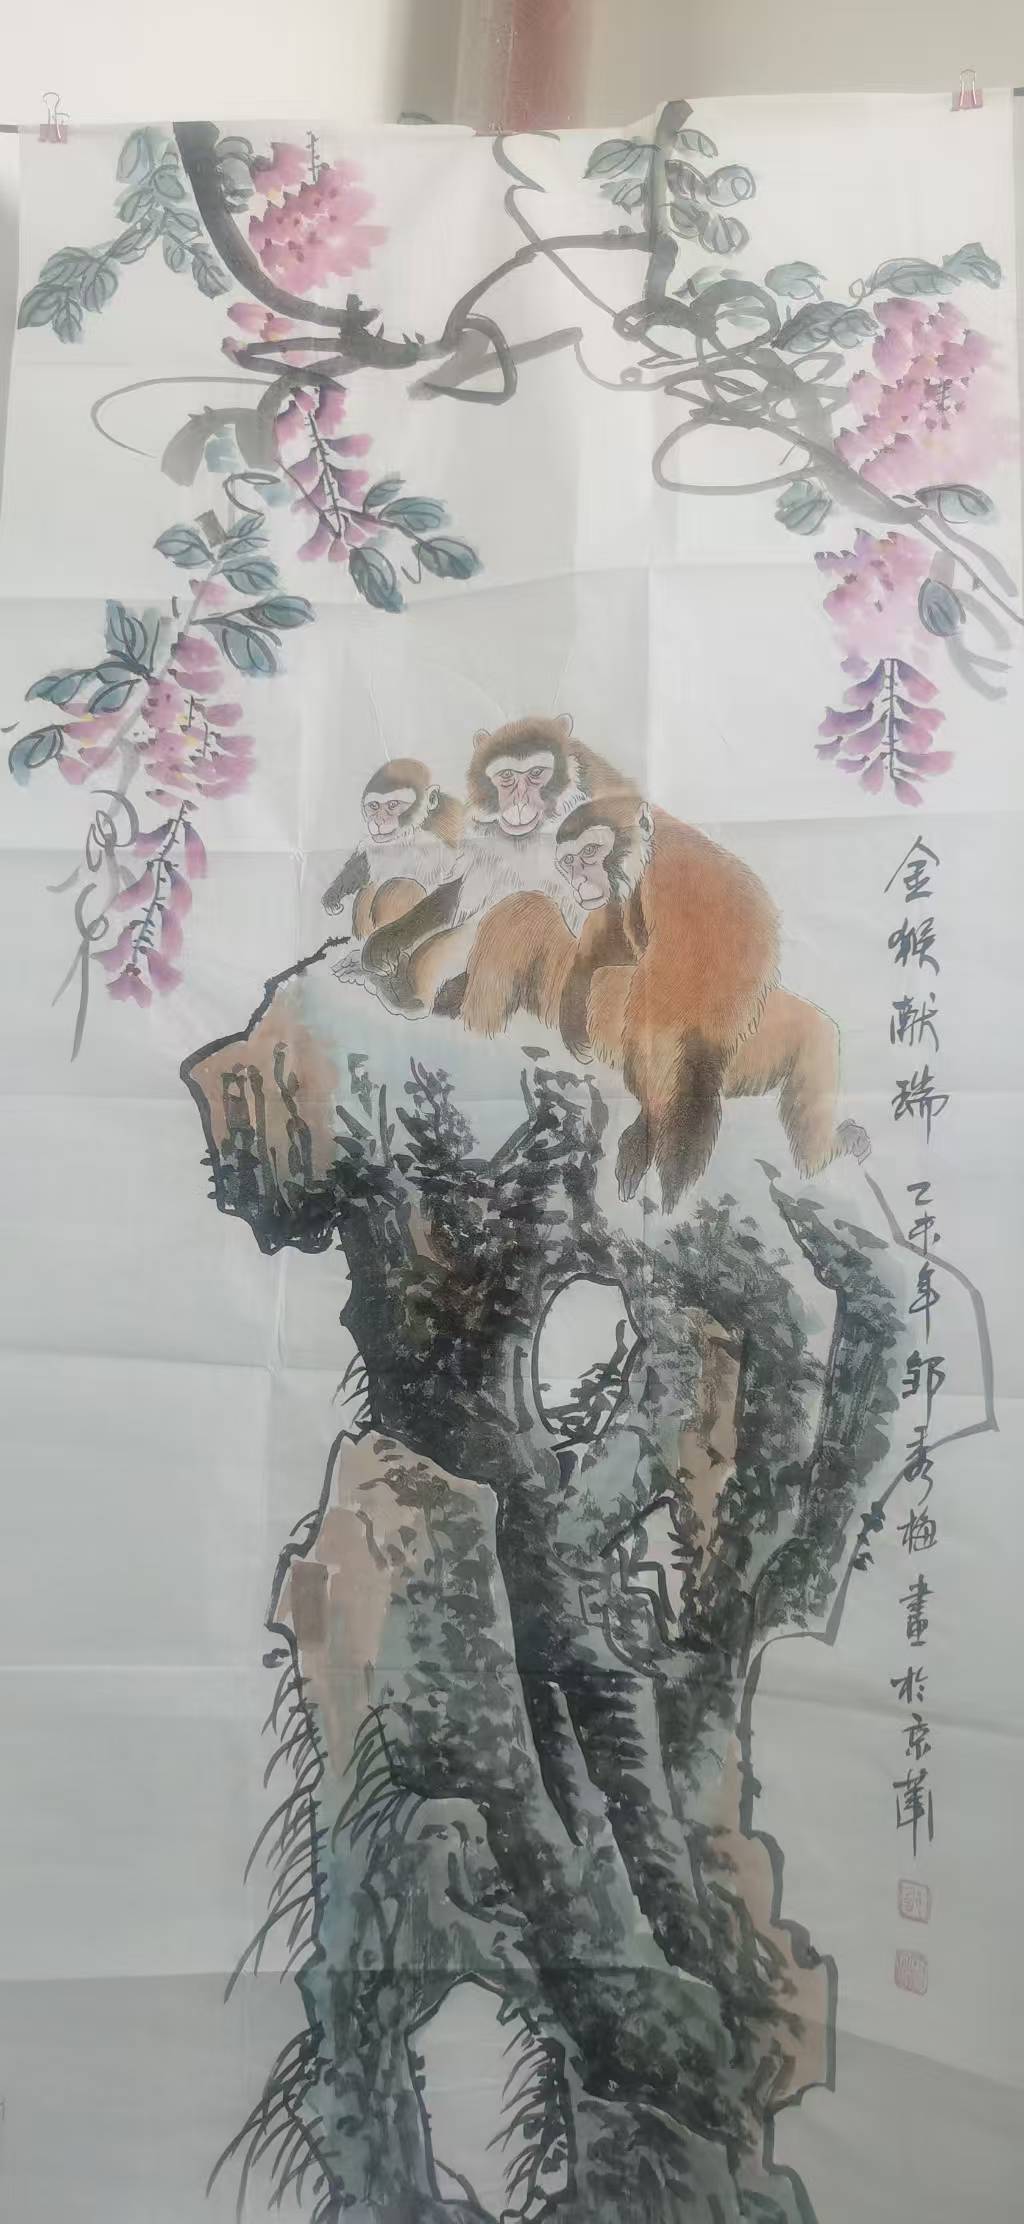 金猴献瑞
乙未年邹秀梅畫於京華